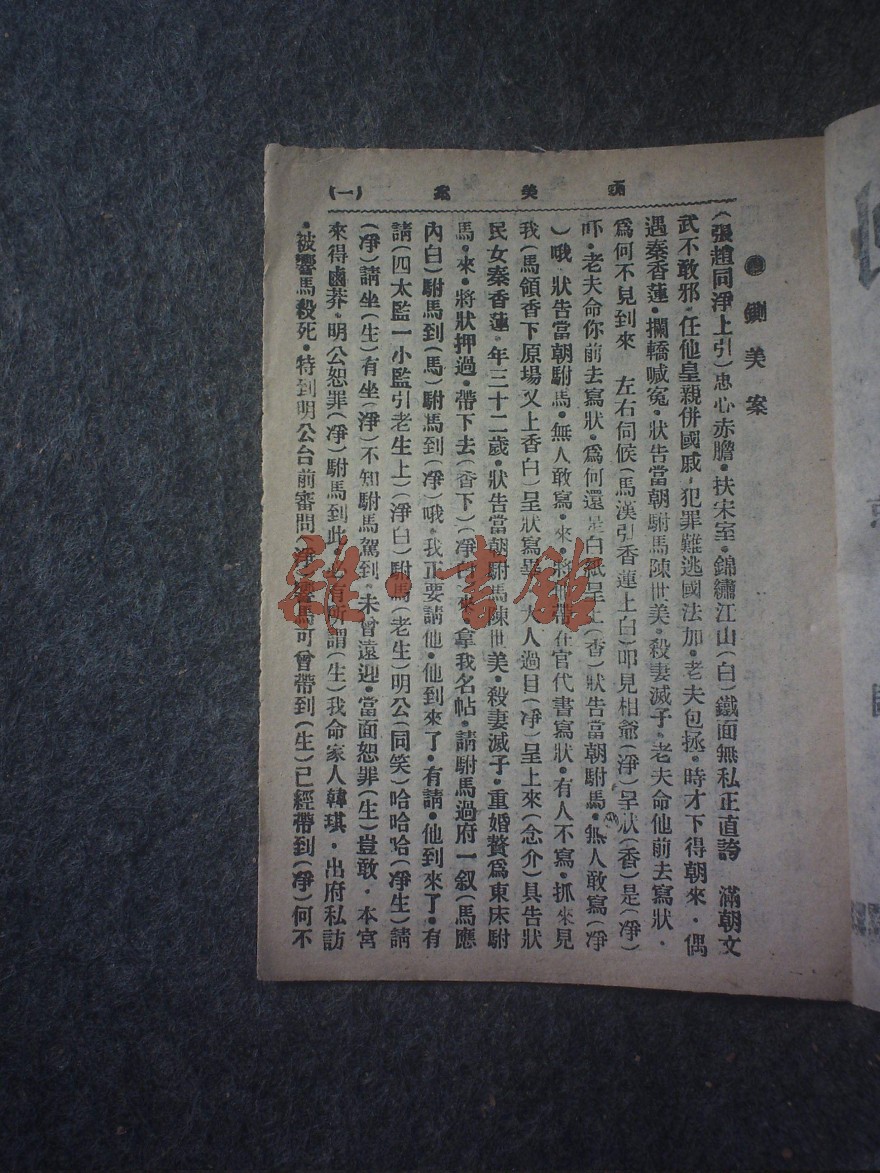 鍘美案
（一）
●鍘美案
（張趙同淨上引）忠心赤膽•扶宋室•錦繡江山（白）鐵面無私正直誇　滿朝文
武不敢邪•任他皇親併國戚•犯罪難逃國法加•老夫包拯•時才下得朝來•偶
遇秦香蓮•攔轎喊冤•狀告當朝駙馬陳世美•殺妻滅子•老夫命他前去寫狀•
爲何不見到來　左右伺候（馬漢引香蓮上白）叩見相爺（淨）呈狀（香）是（淨）
吓•老夫命你前去寫狀•爲何還是白紙呈上（香）狀告當朝駙馬•無人敢寫（淨
）哦•狀告當朝駙馬•無人敢寫•來•將他帶在官代書寫狀•有人不寫•抓來見
我（馬領香下原場又上香白）呈狀寫畢•大人過目（淨）呈上來（念介）具告狀
民女秦香蓮•年三十二歲•狀告當朝駙馬陳世美•殺妻滅子•重婚贅爲東床駙
馬•來•將狀押過•帶下去（香下）（淨白）來•拿我名帖•請駙馬過府一叙（馬應
內白）駙馬到（馬）駙馬到（淨）哦•我正要請他•他到來了•有請•他到來了•有
請（四太監一小監引老生上）（淨白）駙馬（老生）明公（同笑）哈哈哈（淨生）請
（淨）請坐（生）有坐（淨）不知駙馬駕到•未曾遠迎•當面恕罪（生）豈敢•本宮
來得鹵莽•明公恕罪（淨）駙馬到此必有所謂（生）我命家人韓琪•出府私訪
•被響馬殺死•特到明公台前審問（淨）響馬可曾帶到（生）已經帶到（淨）何不
雜•書館